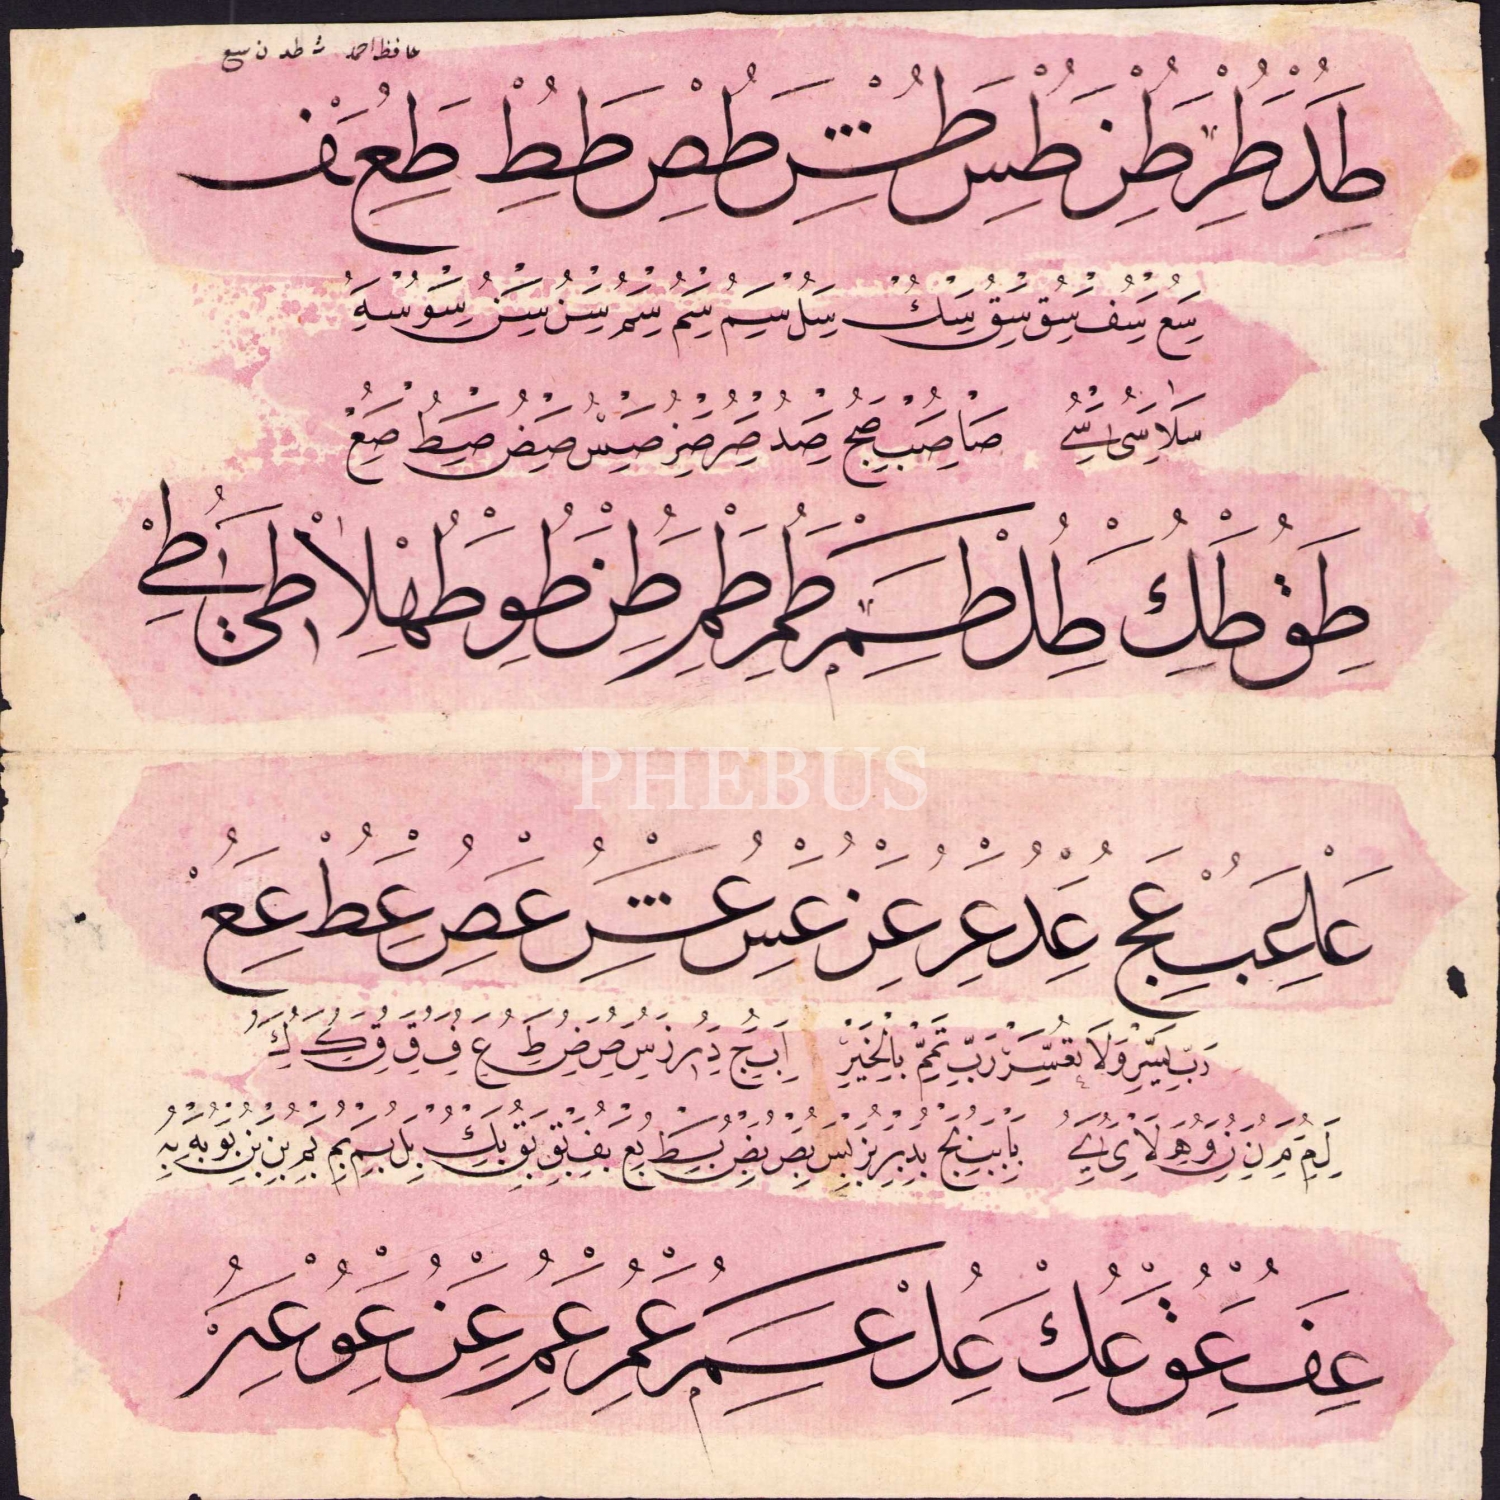 حافظ احمد
طد طر طز طس طش طص طط طع طف
سع سف سق سق سك سل سم سم سم سن سن سو سه
سلا سى سے صا صب صح صد صر صز صس صض صط صع
طق طك طل طم طم طم طن طو طه طلا طى طے
PHEBUS
عا عب عج عد عر عز عس عش عص عط عع
رَبِّ يَسِّرْ وَلَا تُعَسِّرْ رَبِّ تَمِّمْ بِالْخَيْرِ ا ب ج د ر ز س ص ض ط ع ف ق ق ك ك
ل م م ن ن و ه لا ى ے با بب بج بد بر بز بس بص بض بط بع بف بق بق بك بل بم بم بم بن بن بو به به
عف عق عك عل عم عم عم عن عو عه